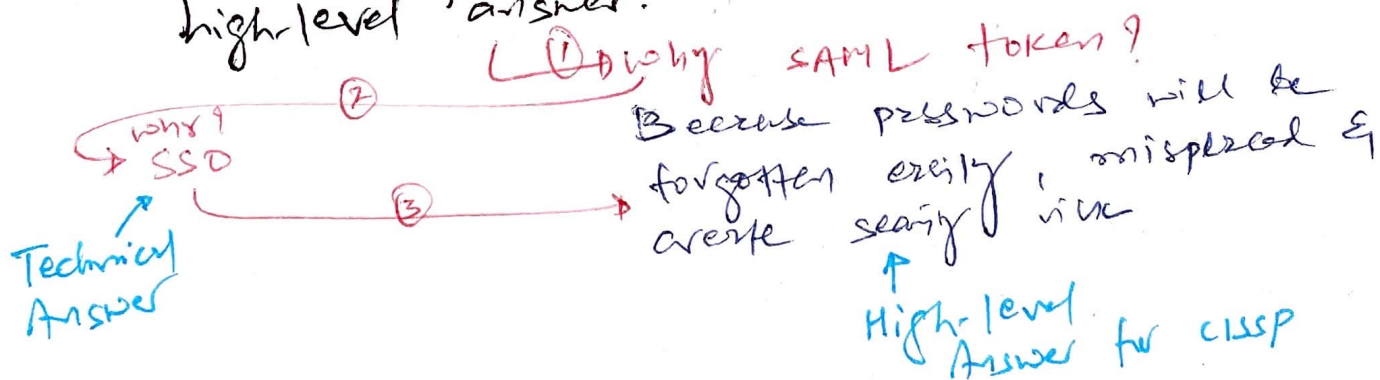 high-level answer.
① why SAML token?
②
why?
SSO
Because passwords will be
forgotten easily, misplaced &
③
create security risk
Technical
Answer
High-level
Answer for CISSP